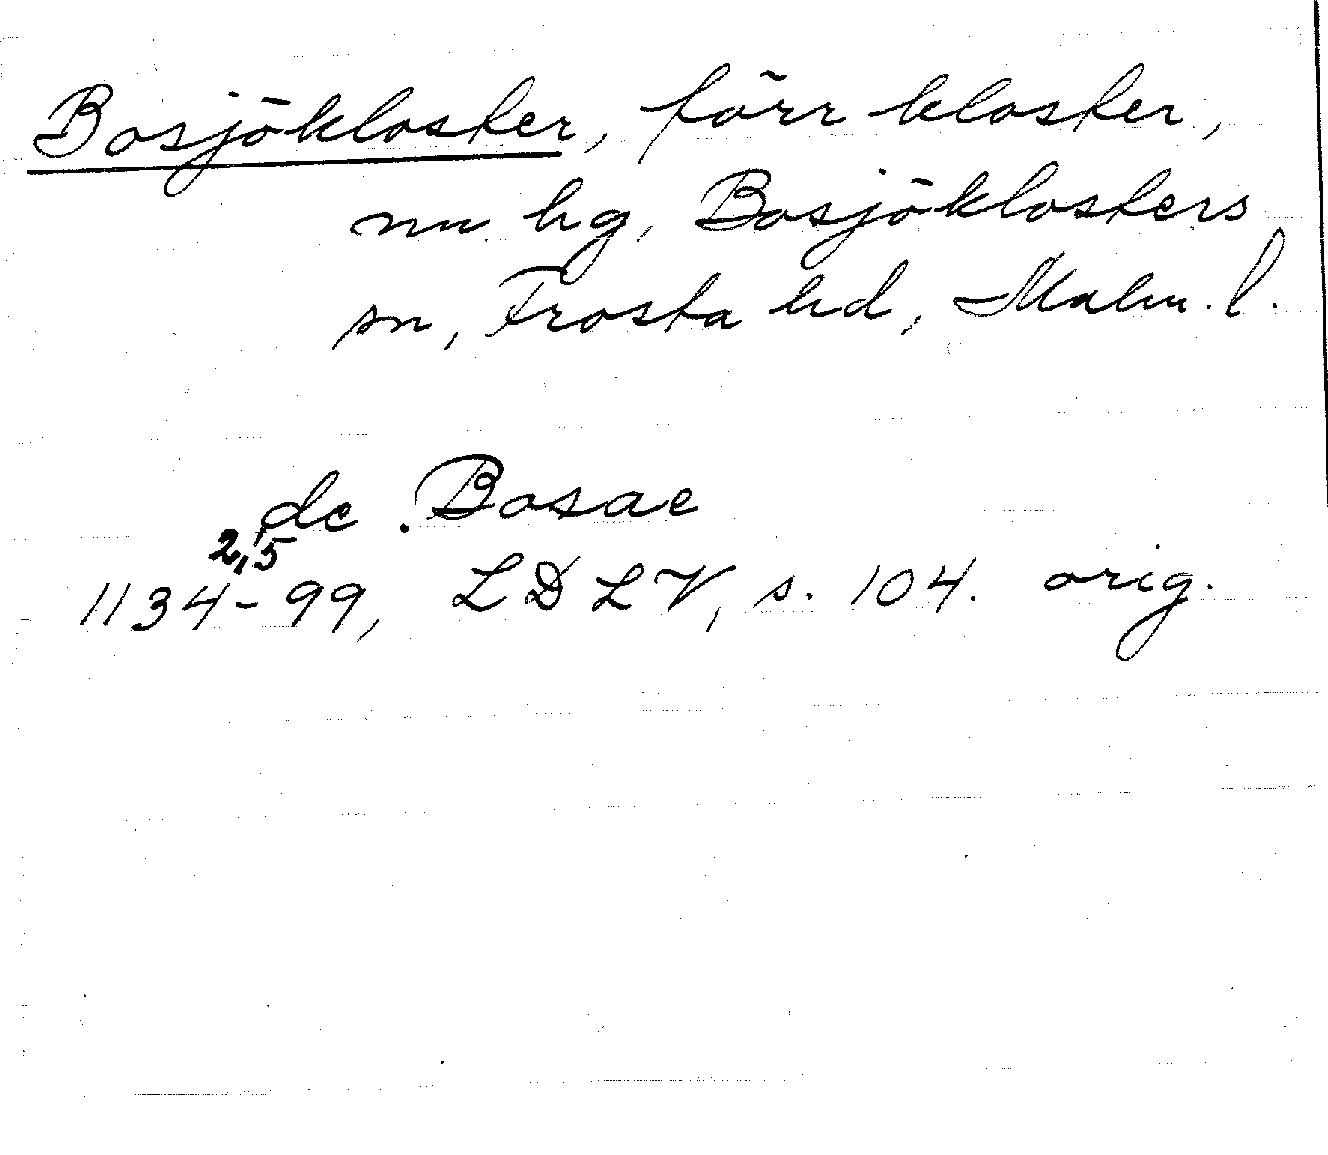 Bosjökloster, förr kloster,
nu hg, Bosjöklosters
sn, Frosta hd, Malm. l.
de Bosae
2,5
1134-99, LDLV, s. 104. orig.